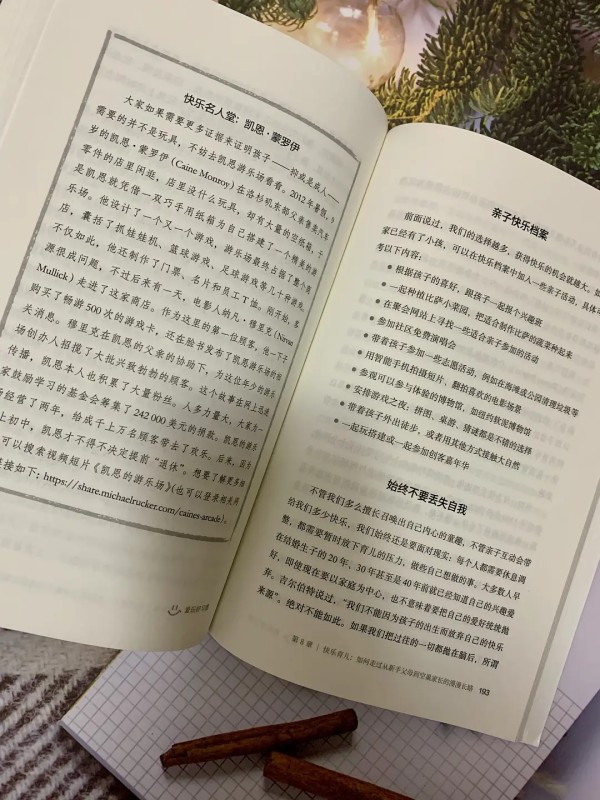 快乐名人堂：凯恩·蒙罗伊
大家如果需要更多证据来证明孩子——抑或是成人——
需要的并不是玩具，不妨去凯恩游乐场看看。2012年暑假，9
岁的凯恩·蒙罗伊（Caine Monroy）在洛杉矶东部父亲售卖汽车
零件的店里闲逛，店里没什么玩具，却有大量的空纸箱，于
是凯恩就凭借一双巧手用纸箱为自己搭建了一个精美的游
乐场。他设计了一个又一个游戏，游乐场最终占据了整个商
店，囊括了抓娃娃机、篮球游戏、足球游戏等几十种游戏。
不仅如此，他还制作了门票、名片和员工T恤。刚开始，客
源很成问题，不过后来有一天，电影人纳凡·穆里克（Nirvan
Mullick）走进了这家商店。作为这里的第一位顾客，他一下子
购买了畅游500次的游戏卡，还在脸书发布了凯恩游乐场的相
关消息。穆里克在凯恩的父亲的协助下，为这位年少的游乐
场创办人招揽了大批兴致勃勃的顾客。这个故事在网上迅速
传播，凯恩本人也积累了大量粉丝。人多力量大，大家为一
家鼓励学习的基金会筹集了242 000美元的捐款。凯恩的游乐
场经营了两年，给成千上万名顾客带去了欢乐。后来，因为
上初中，凯恩才不得不决定提前“退休”。想要了解更多详
可以搜索视频短片《凯恩的游乐场》（也可以登录相关网
链接如下：https://share.michaelrucker.com/caines-arcade）。
亲子快乐档案
前面说过，我们的选择越多，获得快乐的机会就越大。如
家已经有了小孩，可以在快乐档案中加入一些亲子活动，具体可
考以下内容：
● 根据孩子的喜好，跟孩子一起报个兴趣班
● 一起种植比萨小菜园，把适合制作比萨的蔬菜种起来
● 在聚会网站上寻找一些适合亲子参加的活动
● 参加社区免费演唱会
● 带着孩子参加一些志愿活动，例如在海滩或公园清理垃圾等
● 用智能手机拍摄短片，翻拍喜欢的电影场景
● 参观可以参与体验的博物馆，如纽约软泥博物馆
● 安排游戏之夜：拼图、桌游、猜谜都是不错的选择
● 带着孩子外出徒步，或者用其他方式接触大自然
● 一起玩搭建或一起参加创客嘉年华
始终不要丢失自我
不管我们多么擅长召唤出自己内心的童趣，不管亲子互动会带
给我们多少快乐，我们始终还是要面对现实：每个人都需要休息调
整，都需要暂时放下育儿的压力，做些自己想做的事。大多数人早
在结婚生子的20年、30年甚至是40年前就已经知道自己的兴趣爱
好，即使现在要以家庭为中心，也不意味着要把自己的爱好统统抛
弃。吉尔伯特说过，“我们不能因为孩子的出生而放弃自己的快乐
来源”。绝对不能如此。如果我们把过往的一切都抛在脑后，所谓
第8章 | 快乐育儿：如何走过从新手父母到空巢家长的漫漫长路 193